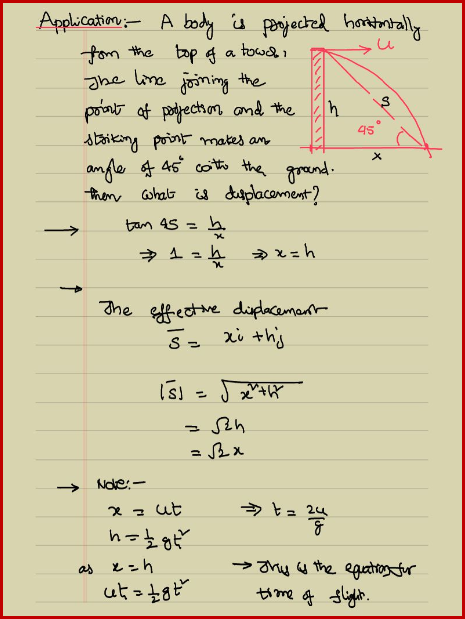 Application:- A body is projected horizontally
from the top of a tower,
The line joining the
point of projection and the
striking point makes an
angle of 45° with the ground.
then what is displacement?
u
h
s
45°
x
→ tan 45 = h/x
⇒ 1 = h/x ⇒ x = h
→
The effective displacement
s̅ = xi + hj
|s̅| = √(x²+h²)
= √2h
= √2 x
→ Note:-
x = ut ⇒ t = 2u/g
h = ½ gt²
as x = h → This is the equation for
ut = ½ gt² time of flight.